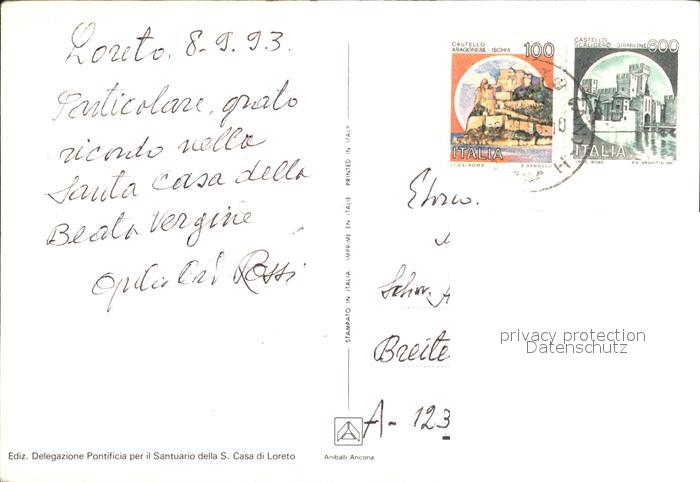 Loreto, 8-9.93.
Particolare, grato
ricordo nella
Santa Casa della
Beata Vergine
Rossi
Ediz. Delegazione Pontificia per il Santuario della S. Casa di Loreto
STAMPATO IN ITALIA IMPRIME EN ITALIE PRINTED IN ITALY
Aniballi Ancona
CASTELLO
ARAGONESE - ISCHIA
100
ITALIA
I.P.Z.S. - ROMA
CASTELLO
SCALIGERO - SIRMIONE
600
ITALIA
Schw.
Breite
A - 123
privacy protection
Datenschutz